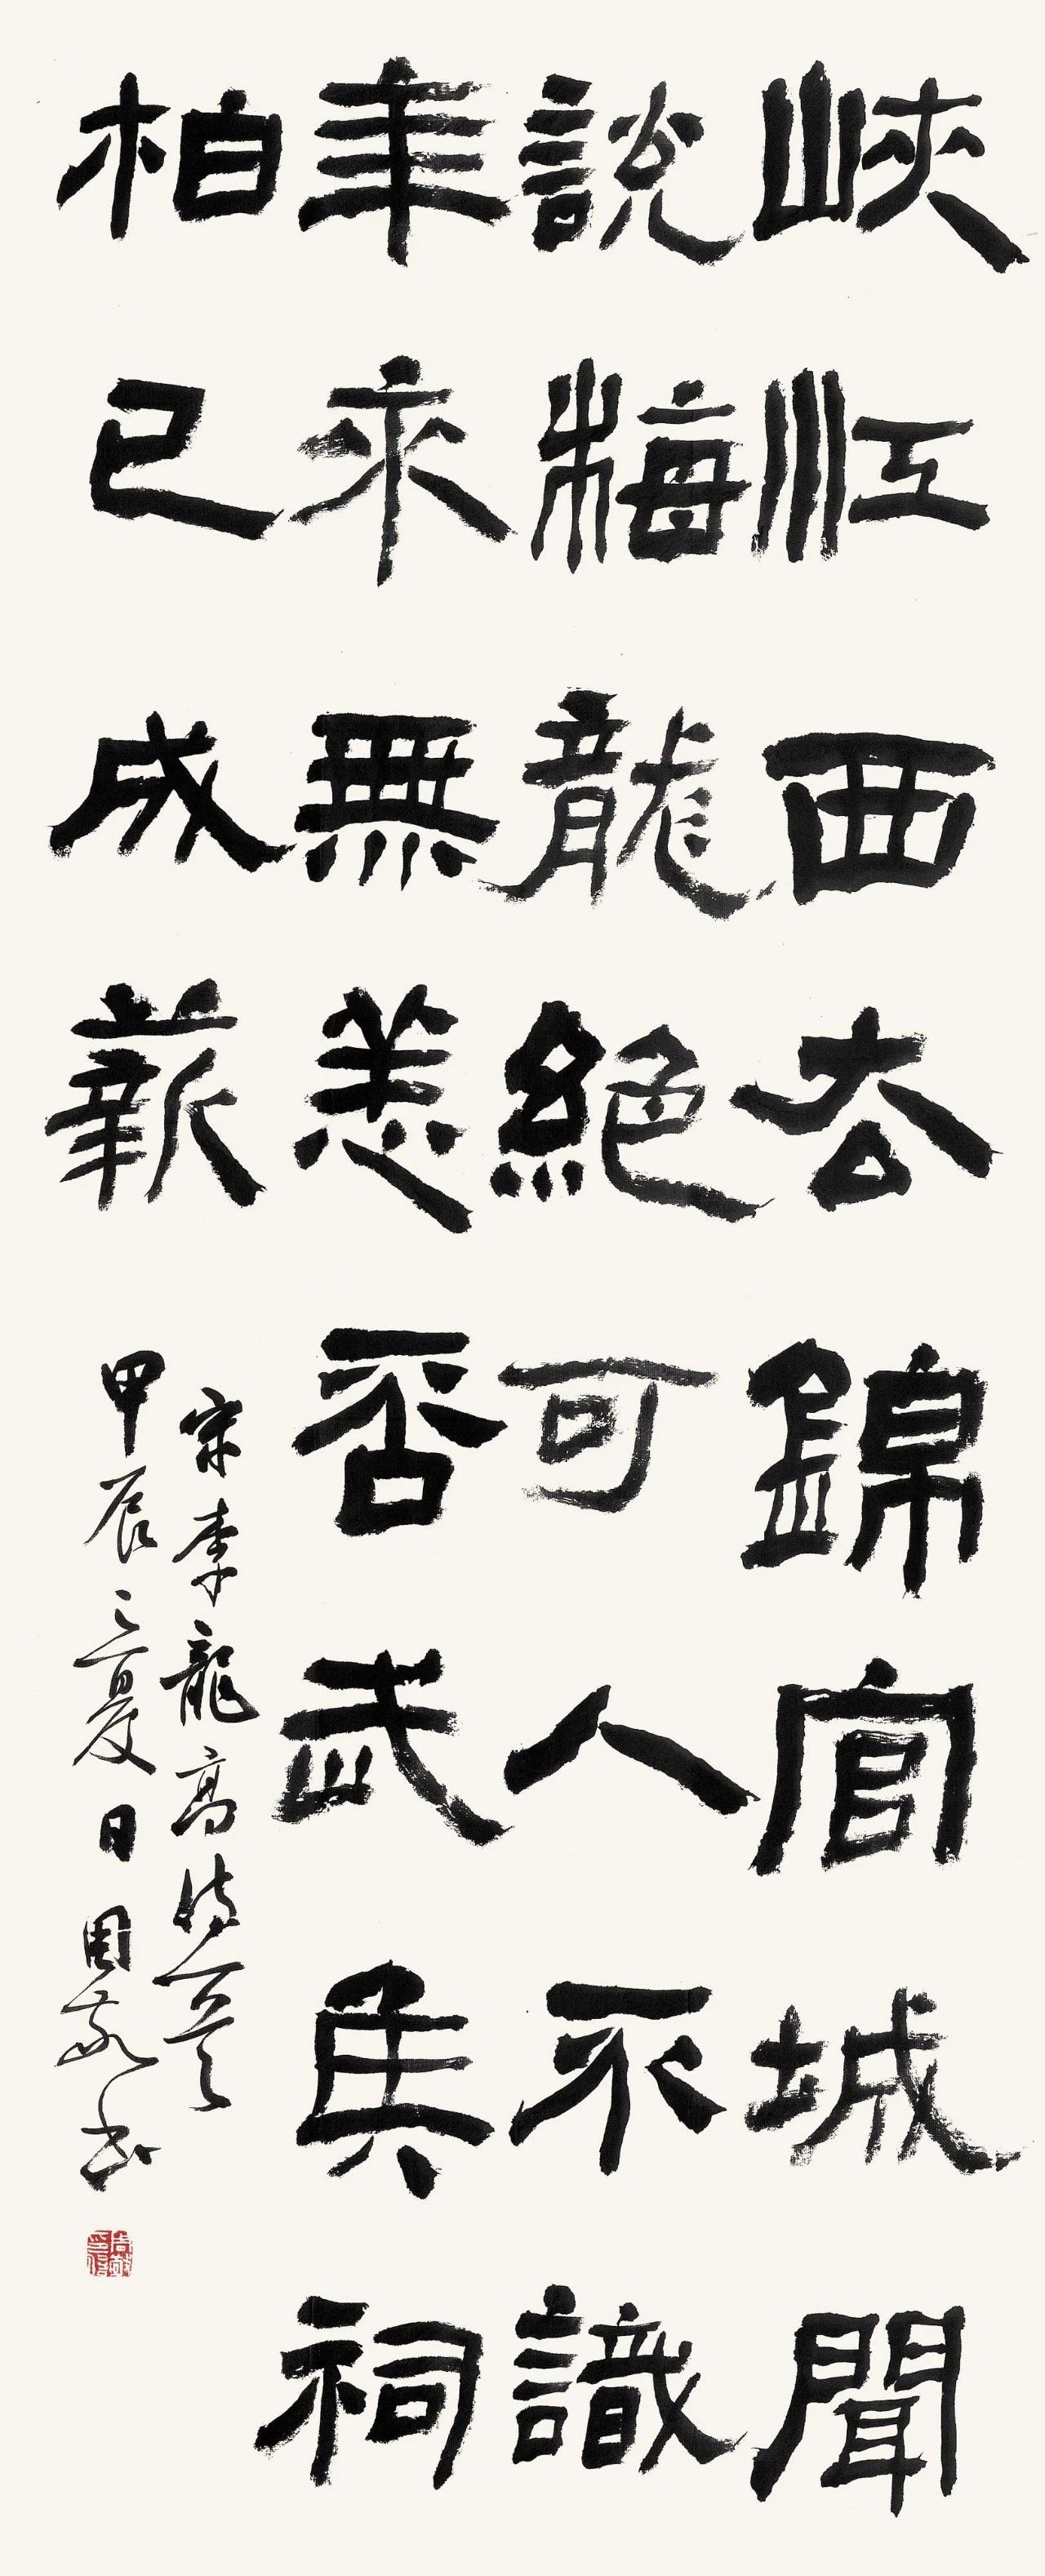 峽江西去錦官城聞
說梅龍絕可人不識
年來無恙否武侯祠
柏已成薪
宋李龍高詩一首
甲辰之夏日周書